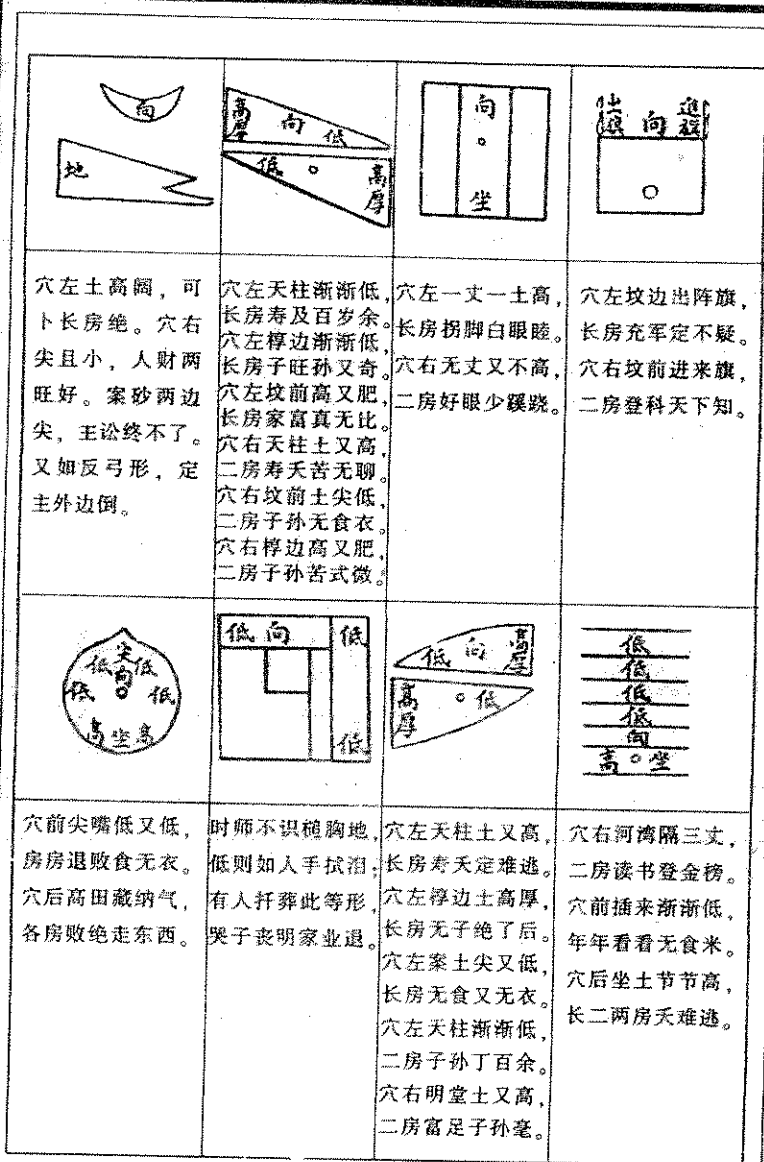 向
地
高厚 向 低
低 高厚
向
坐
向
穴左土高阔，可
卜长房绝。穴右
尖且小，人财两
旺好。案砂两边
尖，主讼终不了。
又如反弓形，定
主外边倒。
穴左天柱渐渐低，
长房寿及百岁余。
穴左椁边渐渐低，
长房子旺孙又奇。
穴左坟前高又肥，
长房家富真无比。
穴右天柱土又高，
二房寿夭苦无聊。
穴右坟前土尖低，
二房子孙无食衣。
穴右椁边高又肥，
二房子孙苦式微。
穴左一丈一土高，
长房拐脚白眼睦。
穴右无丈又不高，
二房好眼少蹊跷。
穴左坟边出阵旗，
长房充军定不疑。
穴右坟前进来旗，
二房登科天下知。
尖
低 低
向
低 低
高 坐 高
低 向 低
低
低 向 高厚
高厚 低
低
低
低
低
向
高 坐
穴前尖嘴低又低，
房房退败食无衣。
穴后高田藏纳气，
各房败绝走东西。
时师不识槌胸地，
低则如人手拭泪；
有人扦葬此等形，
哭子丧明家业退。
穴左天柱土又高，
长房寿夭定难逃。
穴左椁边土高厚，
长房无子绝了后。
穴左案土尖又低，
长房无食又无衣。
穴左天柱渐渐低，
二房子孙丁百余。
穴右明堂土又高，
二房富足子孙毫。
穴右河湾隔三丈，
二房读书登金榜。
穴前插来渐渐低，
年年看看无食米。
穴后坐土节节高，
长二两房夭难逃。